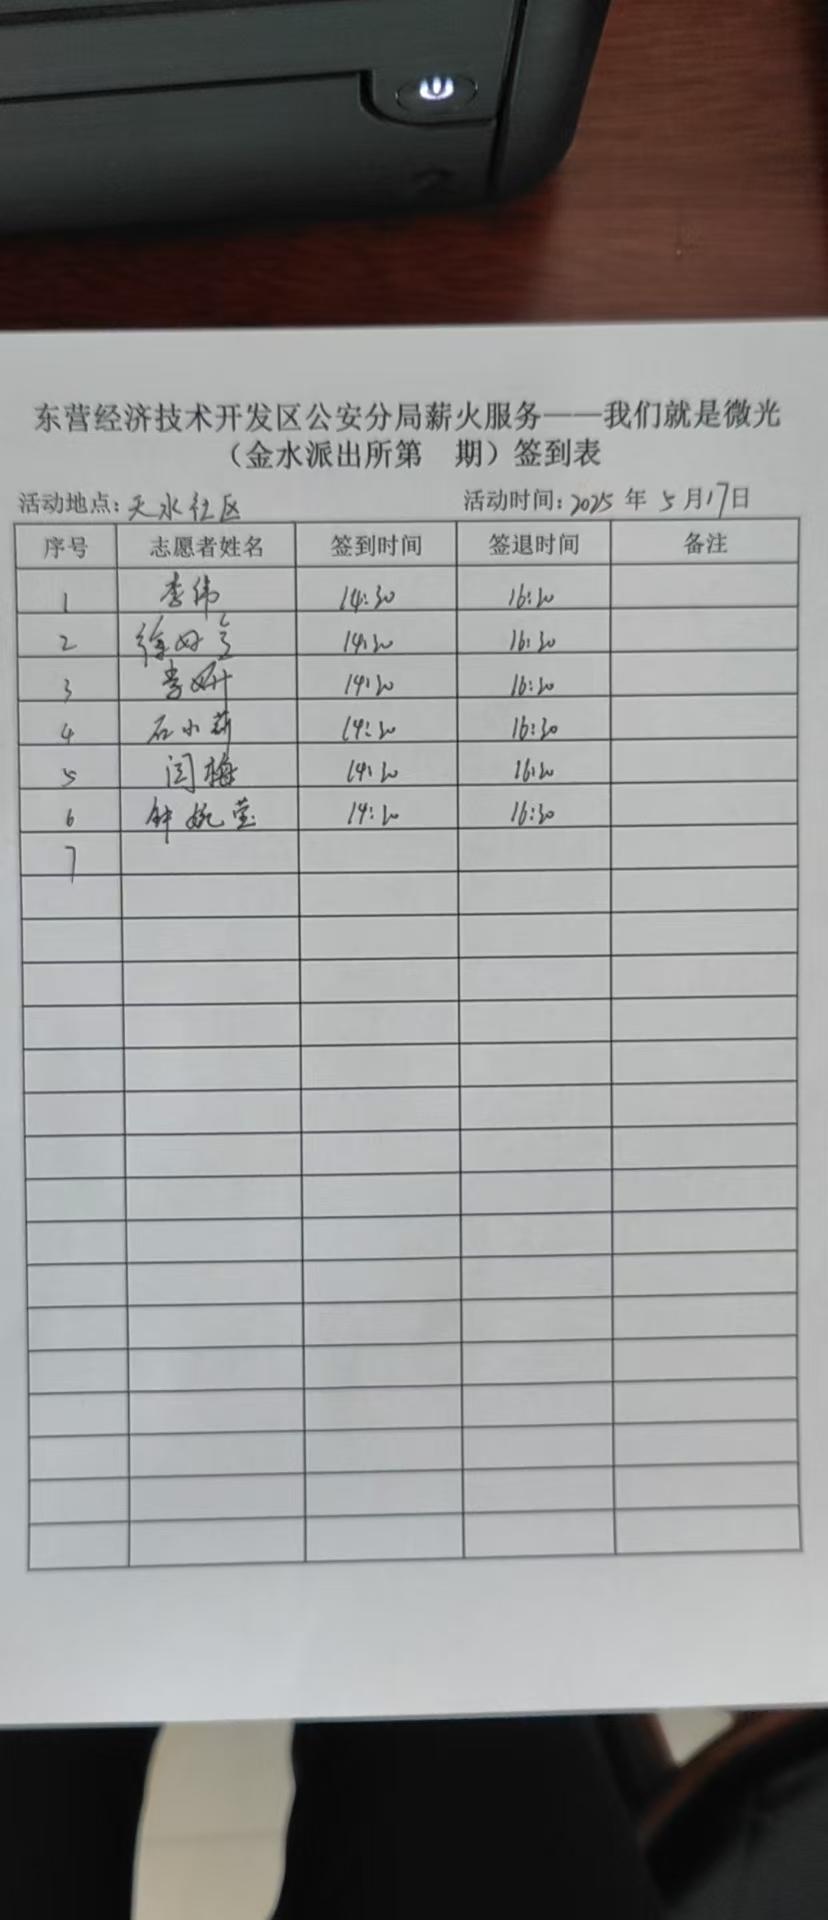 东营经济技术开发区公安分局薪火服务——我们就是微光
（金水派出所第　期）签到表
活动地点：天水社区 活动时间：2025 年 5 月17日
序号 志愿者姓名 签到时间 签退时间 备注
1 李伟 14:30 16:30
2 徐 14:30 16:30
3 李妍 14:30 16:30
4 石小莉 14:30 16:30
5 闫梅 14:30 16:30
6 钟婉莹 14:30 16:30
7